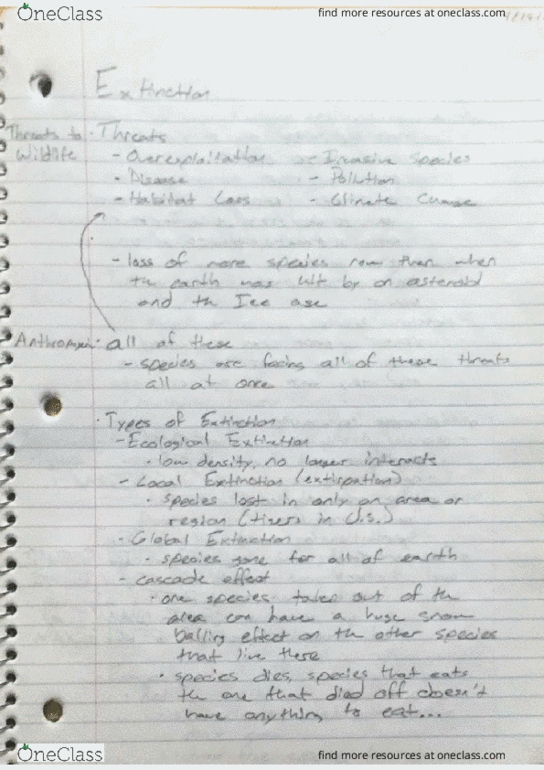 OneClass find more resources at oneclass.com
Extinction
Threats to · Threats
Wildlife - Overexploitation - Invasive Species
- Disease - Pollution
- Habitat Loss - Climate Change
- loss of more species now than when
the earth was hit by an asteroid
and the Ice age
· all of these
- species are facing all of these threats
all at once
· Types of Extinction
- Ecological Extinction
· low density, no longer interacts
- Local Extinction (extirpation)
· species lost in only an area or
region (tigers in U.S.)
- Global Extinction
· species gone for all of earth
- cascade effect
· one species taken out of the
area can have a huge snow
balling effect on the other species
that live there
· species dies, species that eats
the one that died off doesn't
have anything to eat...
OneClass find more resources at oneclass.com